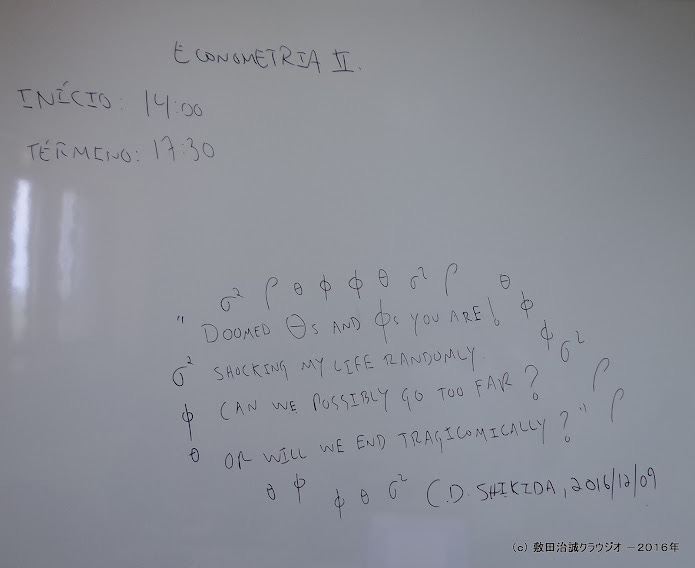 ECONOMETRIA II.
INÍCIO: 14:00
TÉRMINO: 17:30
σ² ρ θ ϕ ϕ θ σ² ρ θ ϕ ϕ σ² ρ ρ
"DOOMED θs AND ϕs YOU ARE!
σ² SHOCKING MY LIFE RANDOMLY.
ϕ CAN WE POSSIBLY GO TOO FAR?
θ OR WILL WE END TRAGICOMICALLY?"
θ ϕ ϕ θ σ² C.D. SHIKIDA, 2016/12/09
(c) 敷田治誠クラウジオ －2016年